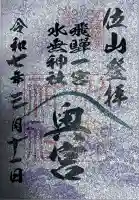 位山登拝
飛騨一宮
水無神社
奥宮
令和七年三月十一日